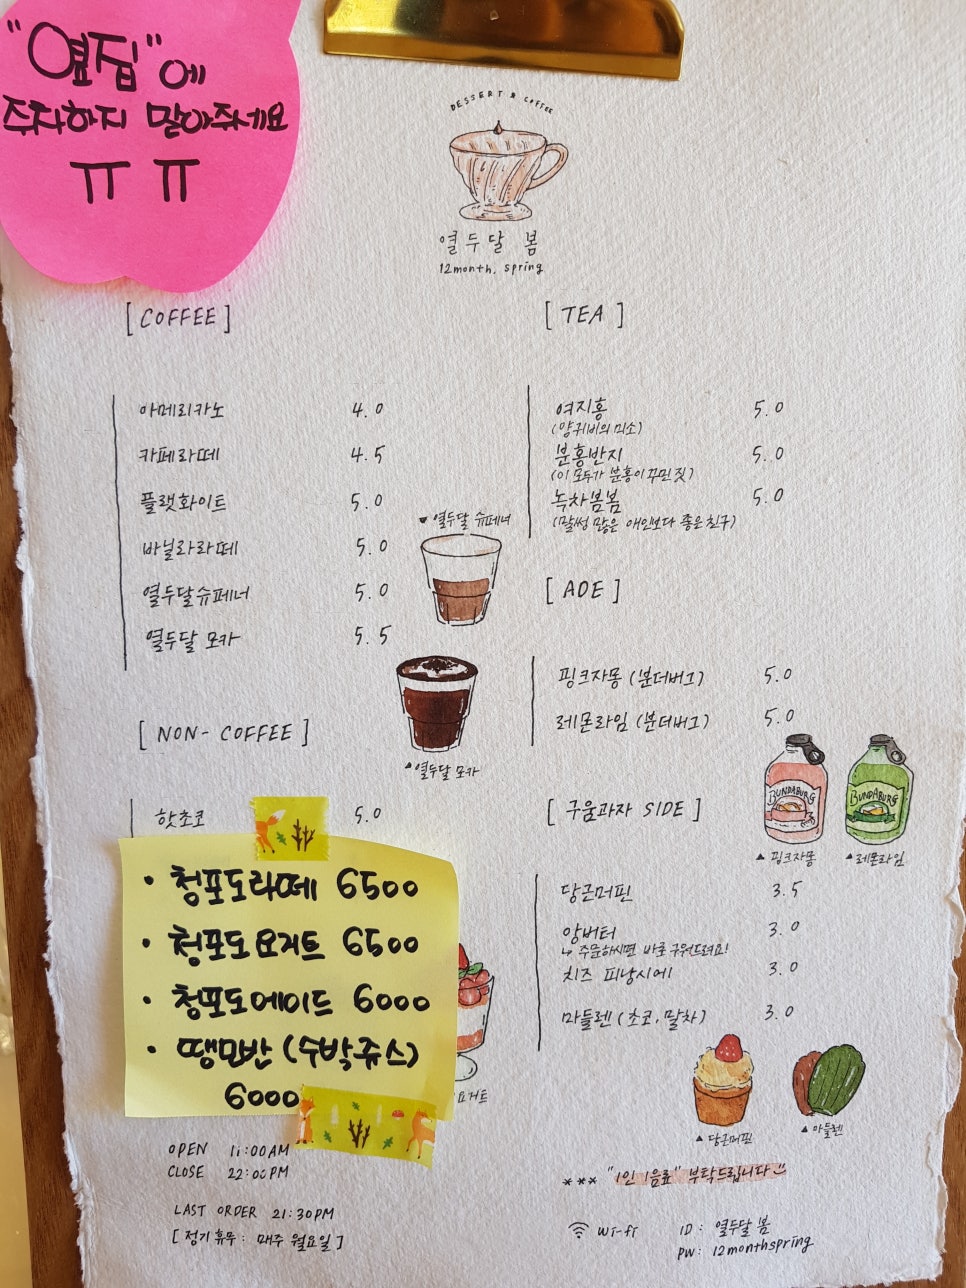 "옆집"에
주차하지 말아주세요
ㅠ ㅠ
DESSERT & COFFEE
열두달 봄
12month, spring
[ COFFEE ]
아메리카노 4.0
카페라떼 4.5
플랫화이트 5.0
바닐라라떼 5.0
열두달슈페너 5.0
열두달 모카 5.5
열두달 슈페너
▲열두달 모카
[ NON- COFFEE ]
핫초코 5.0
· 청포도라떼 6500
· 청포도요거트 6500
· 청포도에이드 6000
· 땡모반 (수박쥬스)
6000
요거트
OPEN 11:00AM
CLOSE 22:00PM
LAST ORDER 21:30PM
[ 정기휴무 : 매주 월요일 ]
[ TEA ]
여지홍 5.0
(양귀비의 미소)
분홍반지 5.0
(이 모두가 분홍이 꾸민 짓)
녹차봄봄 5.0
(말썽 많은 애인보다 좋은 친구)
[ ADE ]
핑크자몽 (분더버그) 5.0
레몬라임 (분더버그) 5.0
BUNDABERG
BUNDABERG
▲ 핑크자몽
▲레몬라임
[ 구움과자 SIDE ]
당근머핀 3.5
앙버터 3.0
↳ 주문하시면 바로 구워드려요!
치즈 피낭시에 3.0
마들렌 (초코, 말차) 3.0
▲ 당근머핀
▲ 마들렌
*** "1인 1음료" 부탁드립니다
Wi-fi ID : 열두달 봄
PW : 12monthspring